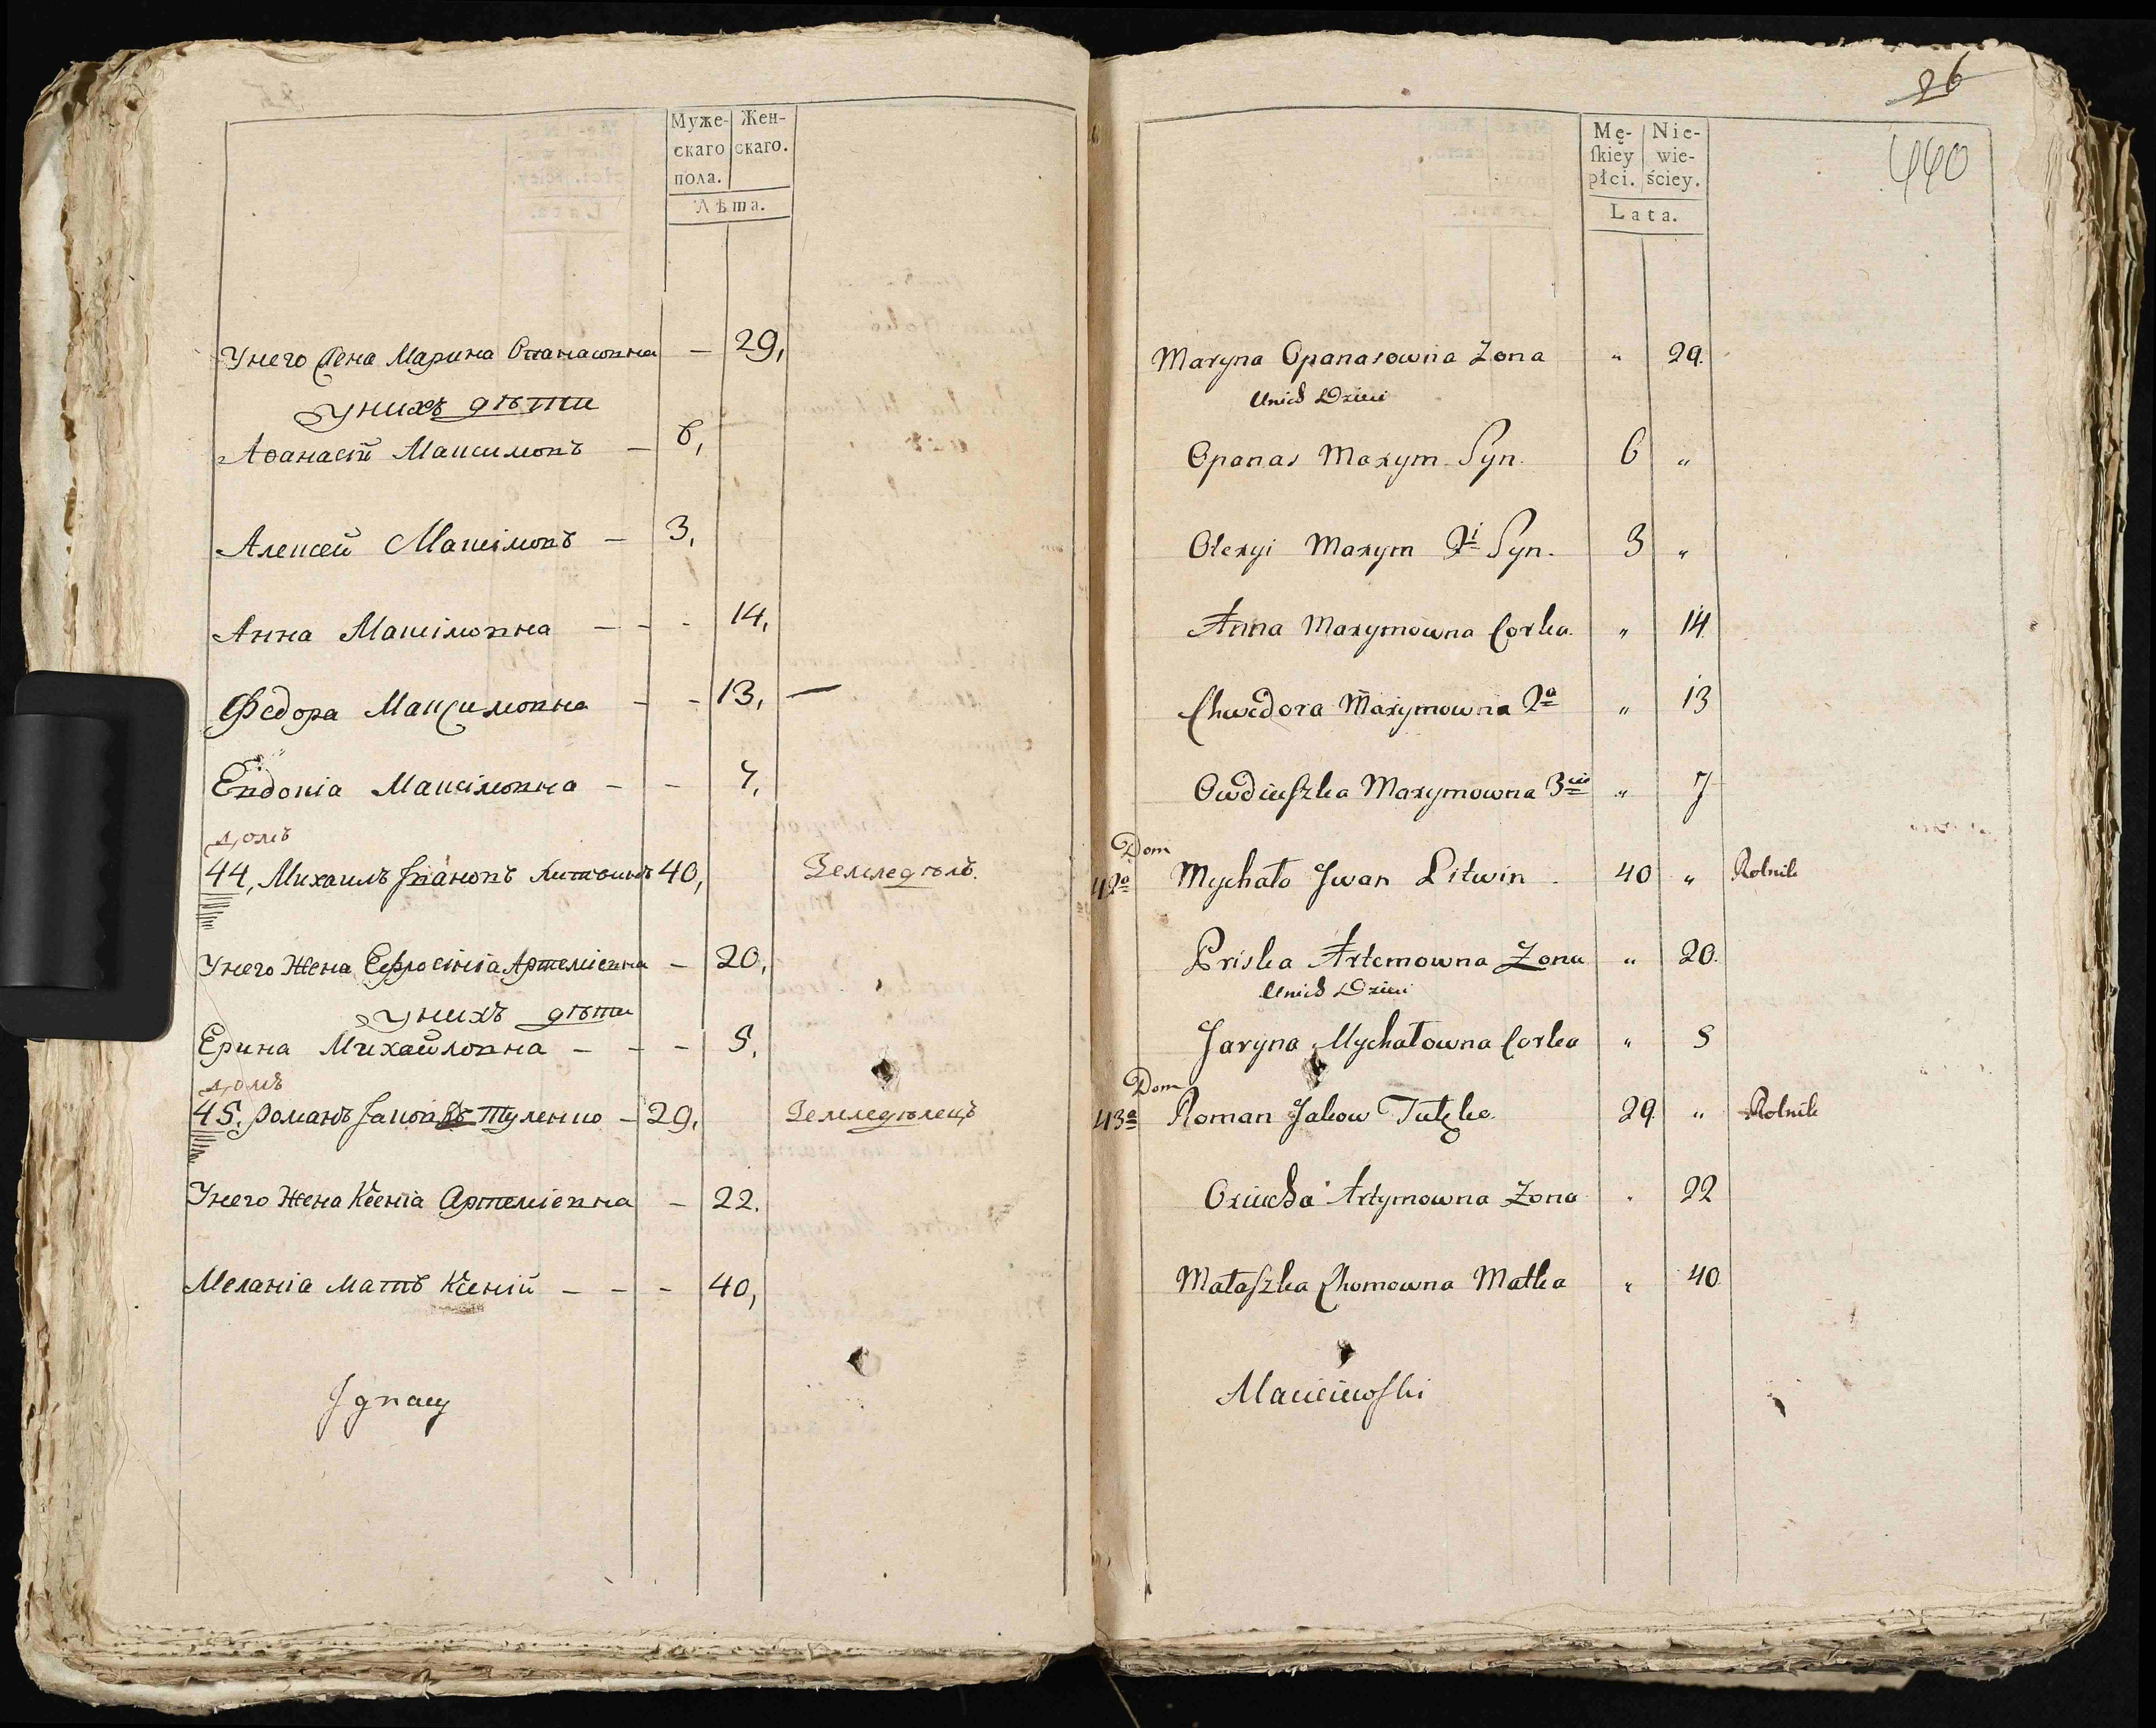 Муже- Жен-
скаго скаго.
пола.
Лѣта.
У него жена Марина Опанасовна — 29,
у нихъ дѣти
Афанасій Максимовъ — 6,
Алексей Максімовъ — 3,
Анна Максімовна — - - 14,
Федора Максимовна - - 13, —
Евдокіа Максімовна - - 7,
домъ
44, Михаилъ Івановъ Литвинъ 40, Земледѣлъ.
У него жена Ефросиніа Артеміевна — 20,
у нихъ дѣти
Ерина Михайловна — - - 5,
домъ
45. Романъ Іаковъ — 29, Земледѣлецъ
У него жена Ксеніа Артеміевна — 22.
Меланіа мать Ксеніи — - - 40,
Ignacy
26
440
Mę- Nie-
ſkiey wie-
płci. ściey.
Lata.
Maryna Opanasowna Zona " 29.
Unich Dzieci
Opanas Maxym Syn. 6 "
Olexyi Maxym 2i Syn. 3 "
Anna Maxymowna Corka. " 14.
Chwedora Maxymowna 2a " 13
Owdiuszka Maxymowna 3cia " 7
Dom
42a Mychało Jwan Litwin . 40 " Rolnik
Priska Artemowna Zona " 20.
Unich Dzieci
Jaryna Mychałowna Corka " 5
Dom
43a Roman Jakow 29. " Rolnik
Oxiucha Artymowna Zona " 22
Małaszka Chomowna Matka " 40